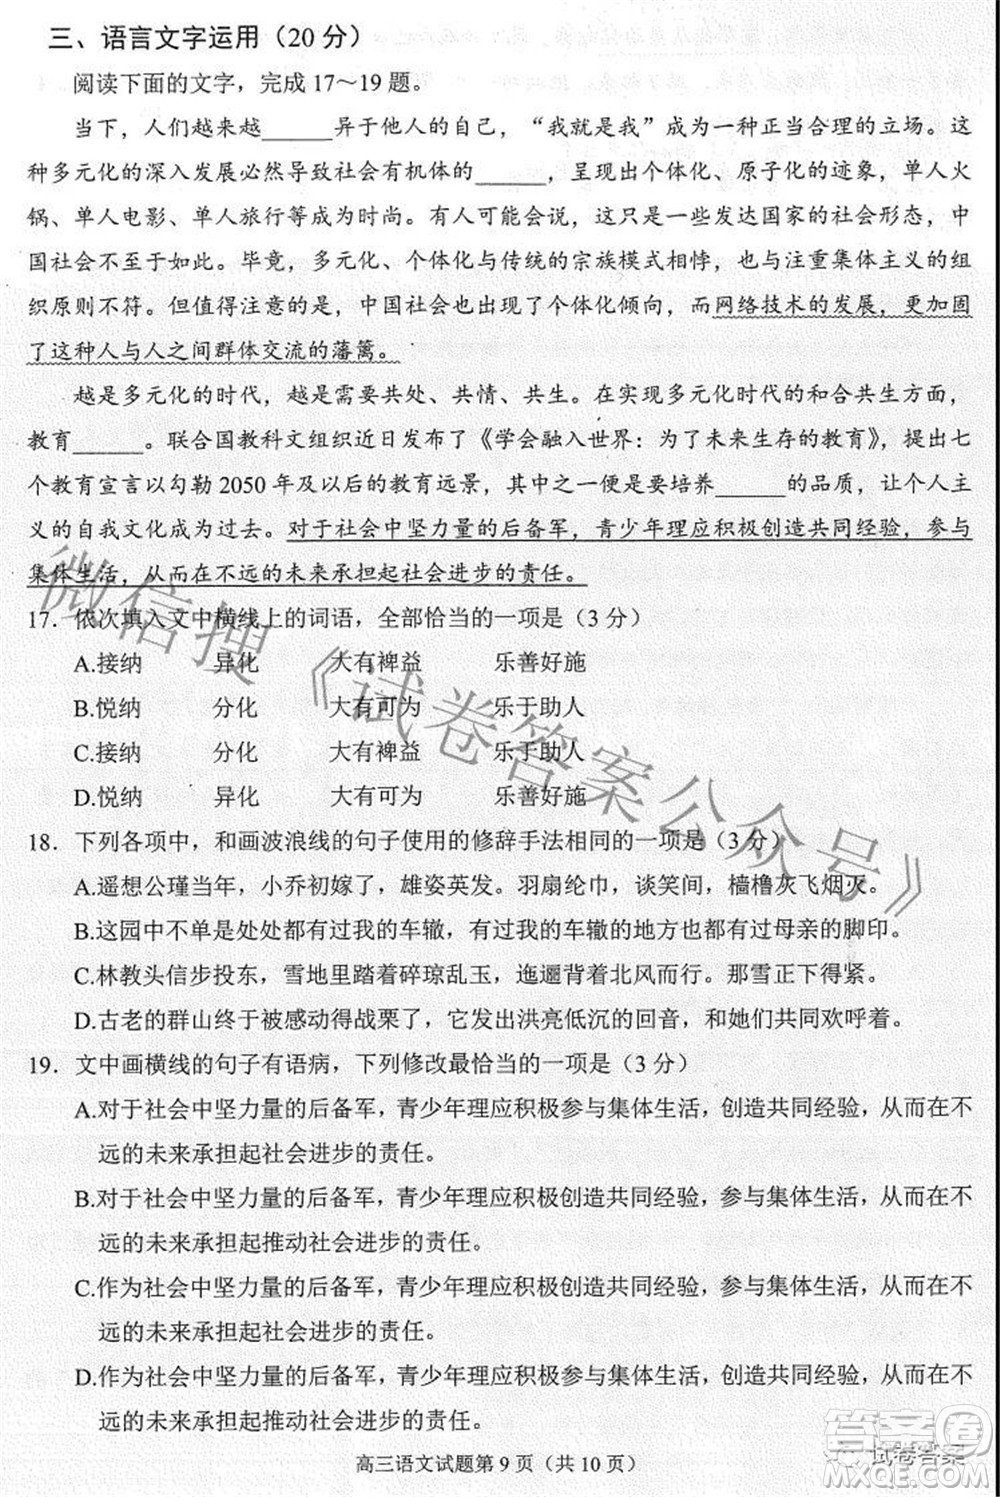 三、语言文字运用（20 分）
阅读下面的文字，完成 17～19 题。
当下，人们越来越______异于他人的自己，“我就是我”成为一种正当合理的立场。这
种多元化的深入发展必然导致社会有机体的______，呈现出个体化、原子化的迹象，单人火
锅、单人电影、单人旅行等成为时尚。有人可能会说，这只是一些发达国家的社会形态，中
国社会不至于如此。毕竟，多元化、个体化与传统的宗族模式相悖，也与注重集体主义的组
织原则不符。但值得注意的是，中国社会也出现了个体化倾向，而网络技术的发展，更加固
了这种人与人之间群体交流的藩篱。
越是多元化的时代，越是需要共处、共情、共生。在实现多元化时代的和合共生方面，
教育______。联合国教科文组织近日发布了《学会融入世界：为了未来生存的教育》，提出七
个教育宣言以勾勒 2050 年及以后的教育远景，其中之一便是要培养______的品质，让个人主
义的自我文化成为过去。对于社会中坚力量的后备军，青少年理应积极创造共同经验，参与
集体生活，从而在不远的未来承担起社会进步的责任。
17．依次填入文中横线上的词语，全部恰当的一项是（3 分）
A.接纳 异化 大有裨益 乐善好施
B.悦纳 分化 大有可为 乐于助人
C.接纳 分化 大有裨益 乐于助人
D.悦纳 异化 大有可为 乐善好施
18．下列各项中，和画波浪线的句子使用的修辞手法相同的一项是（3 分）
A.遥想公瑾当年，小乔初嫁了，雄姿英发。羽扇纶巾，谈笑间，樯橹灰飞烟灭。
B.这园中不单是处处都有过我的车辙，有过我的车辙的地方也都有过母亲的脚印。
C.林教头信步投东，雪地里踏着碎琼乱玉，迤逦背着北风而行。那雪正下得紧。
D.古老的群山终于被感动得战栗了，它们发出洪亮低沉的回音，和她们共同欢呼着。
19．文中画横线的句子有语病，下列修改最恰当的一项是（3 分）
A.对于社会中坚力量的后备军，青少年理应积极参与集体生活，创造共同经验，从而在不
远的未来承担起社会进步的责任。
B.对于社会中坚力量的后备军，青少年理应积极创造共同经验，参与集体生活，从而在不
远的未来承担起推动社会进步的责任。
C.作为社会中坚力量的后备军，青少年理应积极创造共同经验，参与集体生活，从而在不
远的未来承担起社会进步的责任。
D.作为社会中坚力量的后备军，青少年理应积极参与集体生活，创造共同经验，从而在不
远的未来承担起推动社会进步的责任。
高三语文试题第 9 页（共 10 页）
微信搜《试卷答案公众号》
答案圈
试卷答案
MXQE.COM